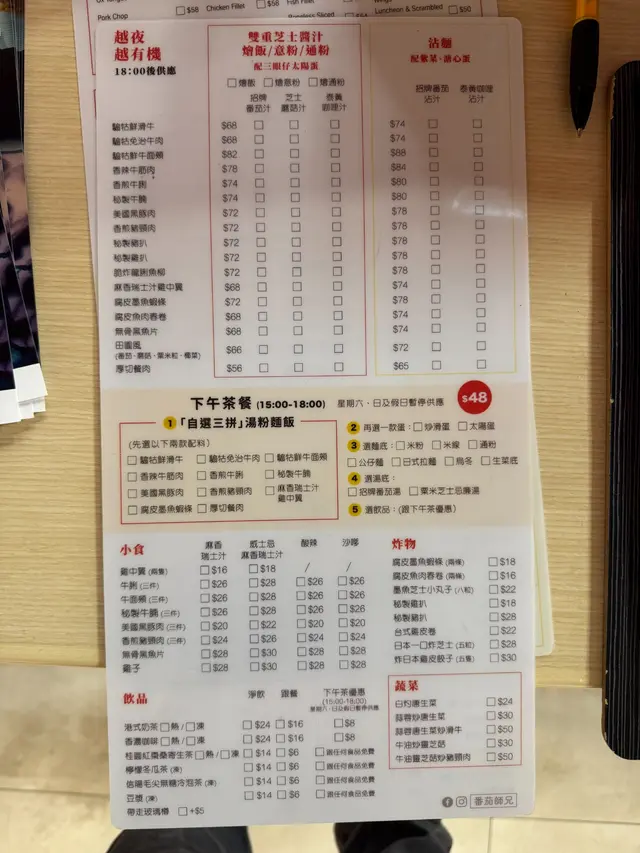 Pork Chop
$58
Chicken Fillet
$58
Luncheon & Scrambled
$50
越夜
越有機
18:00後供應
雙重芝士醬汁
燴飯/意粉/通粉
配三眼仔太陽蛋
燴飯 燴意粉 燴通粉
招牌番茄汁 芝士蘑菇汁 泰黃咖喱汁
沾麵
配紫菜·溏心蛋
招牌番茄沾汁 泰黃咖喱沾汁
驢牯鮮滑牛 $68 $74
驢牯免治牛肉 $68 $74
驢牯鮮牛面頰 $82 $88
香辣牛筋肉 $78 $84
香煎牛脷 $74 $80
秘製牛腩 $74 $80
美國黑豚肉 $72 $78
香煎豬頸肉 $72 $78
秘製豬扒 $72 $78
秘製雞扒 $72 $78
脆炸龍脷魚柳 $72 $78
麻香瑞士汁雞中翼 $68 $74
腐皮墨魚蝦條 $72 $78
腐皮魚肉春卷 $68 $74
無骨黑魚片 $68 $74
田園風 $66 $72
(番茄·蘑菇·粟米粒·椰菜)
厚切餐肉 $56 $65
下午茶餐 (15:00-18:00) 星期六、日及假日暫停供應 $48
1 「自選三拼」湯粉麵飯
(先選以下兩款配料)
驢牯鮮滑牛 驢牯免治牛肉 驢牯鮮牛面頰
香辣牛筋肉 香煎牛脷 秘製牛腩
美國黑豚肉 香煎豬頸肉 麻香瑞士汁雞中翼
腐皮墨魚蝦條 厚切餐肉
2 再選一款蛋: 炒滑蛋 太陽蛋
3 選麵底: 米粉 米線 通粉
公仔麵 日式拉麵 烏冬 生菜底
4 選湯底:
招牌番茄湯 粟米芝士忌廉湯
5 選飲品: (跟下午茶優惠)
小食 麻香瑞士汁 威士忌麻香瑞士汁 酸辣 沙嗲
雞中翼 (兩隻) $16 $18 / /
牛脷 (三件) $26 $28 $26 $26
牛面頰 (三件) $26 $28 $26 $26
秘製牛腩 (三件) $26 $28 $26 $26
美國黑豚肉 (三件) $20 $22 $20 $20
香煎豬頸肉 (三件) $24 $26 $24 $24
無骨黑魚片 $28 $30 $28 $28
雞子 $28 $30 $28 $28
炸物
腐皮墨魚蝦條 (兩條) $18
腐皮魚肉春卷 (兩條) $16
墨魚芝士小丸子 (八粒) $22
秘製豬扒 $18
秘製雞扒 $28
台式雞皮卷 $22
日本一口炸芝士 (五粒) $28
炸日本雞皮餃子 (五隻) $30
飲品 淨飲 跟餐 下午茶優惠
(15:00-18:00)
星期六、日及假日暫停供應
港式奶茶 熱/凍 $24 $16 $8
香濃咖啡 熱/凍 $24 $16 $8
桂圓紅棗桑寄生茶 熱/凍 $14 $6 跟任何食品免費
檸檬冬瓜茶 (凍) $14 $6 跟任何食品免費
信陽毛尖無糖冷泡茶 (凍) $14 $6 跟任何食品免費
豆漿 (凍) $14 $6 跟任何食品免費
帶走玻璃樽 +$5
蔬菜
白灼唐生菜 $24
蒜蓉炒唐生菜 $30
蒜蓉唐生菜炒滑牛 $50
牛油炒靈芝菇 $30
牛油靈芝菇炒豬頸肉 $50
番茄師兄